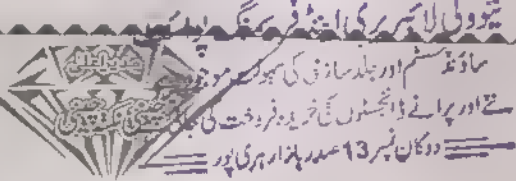 نیو ولی لائبریری اینڈ فریمنگ
ساؤنڈ سسٹم اور جلد سازی کی سہولت موجود ہے
نئے اور پرانے ڈائجسٹوں کی خرید و فروخت کی جاتی ہے
دوکان نمبر 13 صدر بازار ہری پور